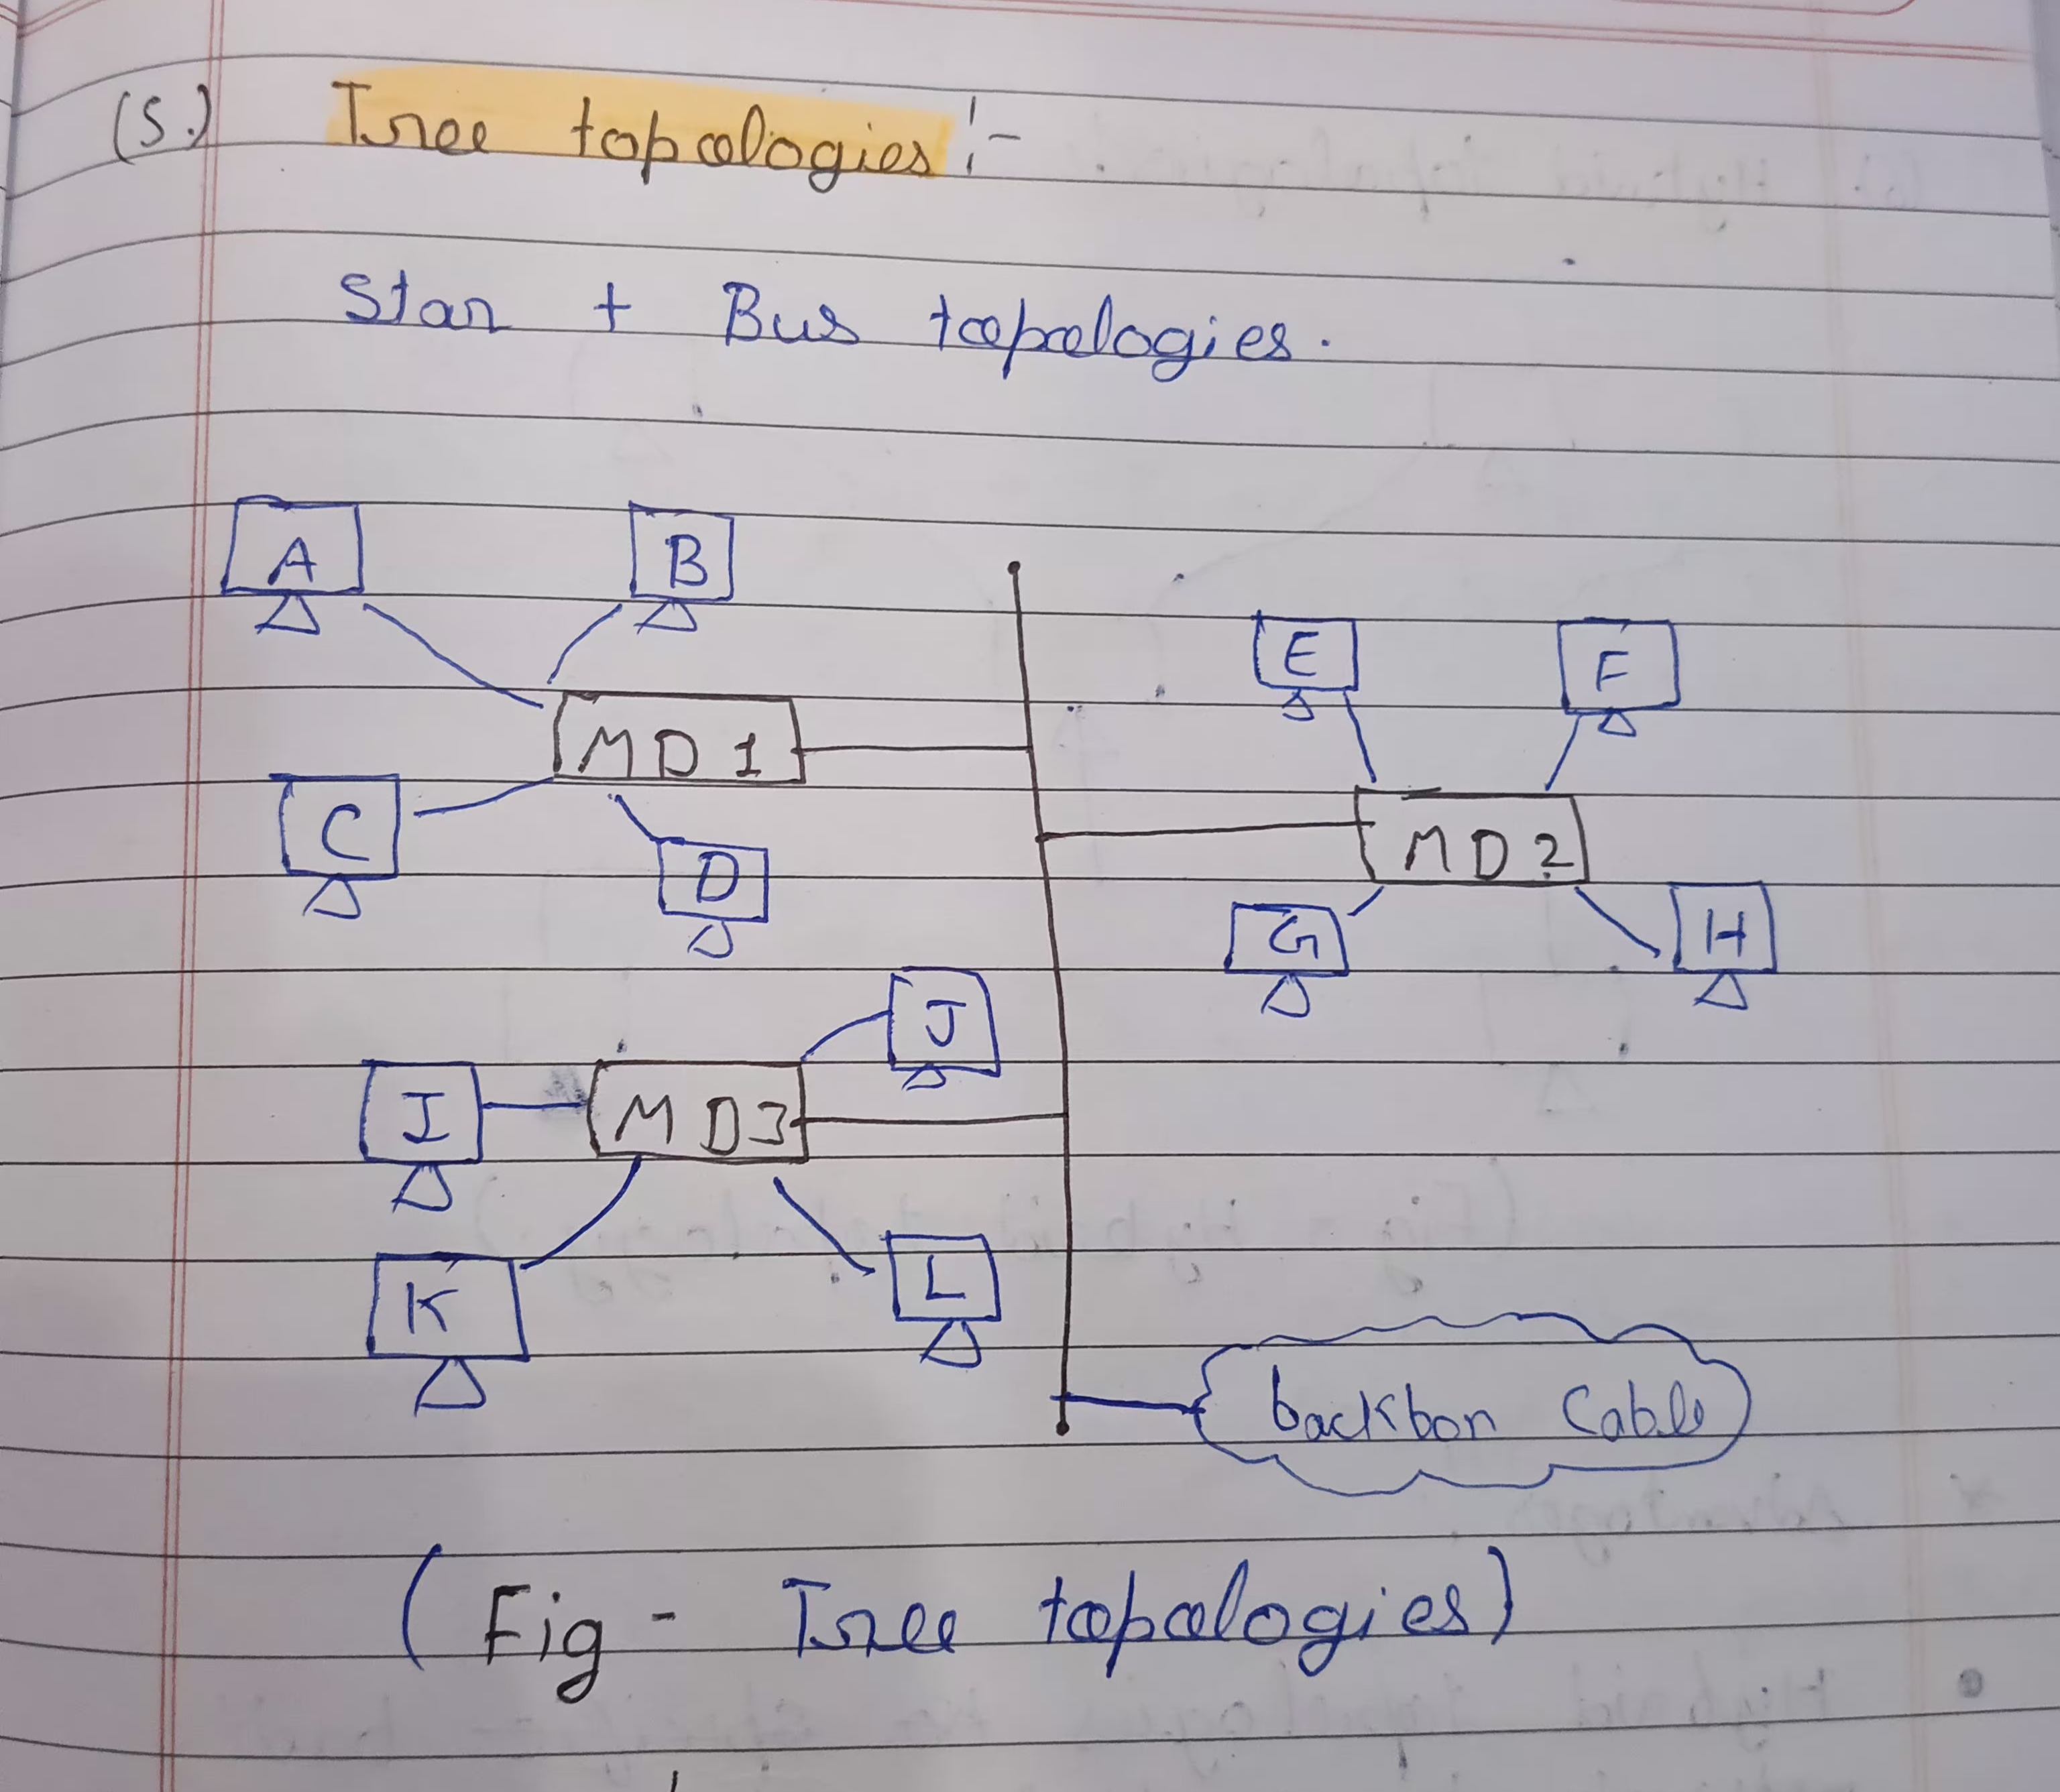 (5.) Tree topologies :-
Star + Bus topologies.
A
B
E
F
MD 1
C
D
MD 2
G
H
J
I
MD3
K
L
backbon Cable
(Fig - Tree topologies)